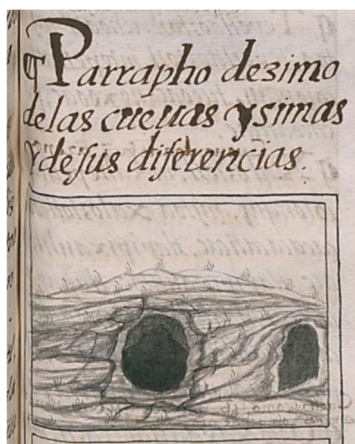 ¶ Parrapho dezimo
de las cueuas y simas
y de sus diferencias.